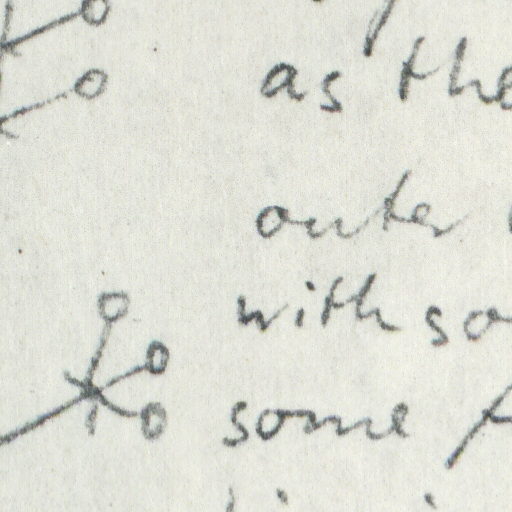 as the
outer
with so
some